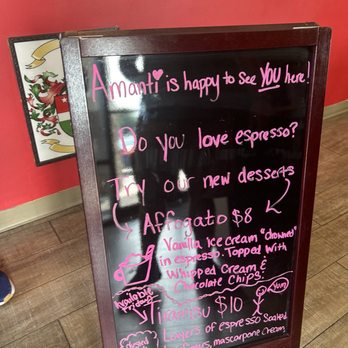 Amanti is happy to see YOU here!
Do you love espresso?
Try our new desserts
Affogato $8
Vanilla Ice cream "drowned"
in espresso. Topped with
Whipped Cream &
Chocolate Chips!
Available
Fridays
Tiramisu $10
Yum
Layers of espresso soaked
mascarpone cream